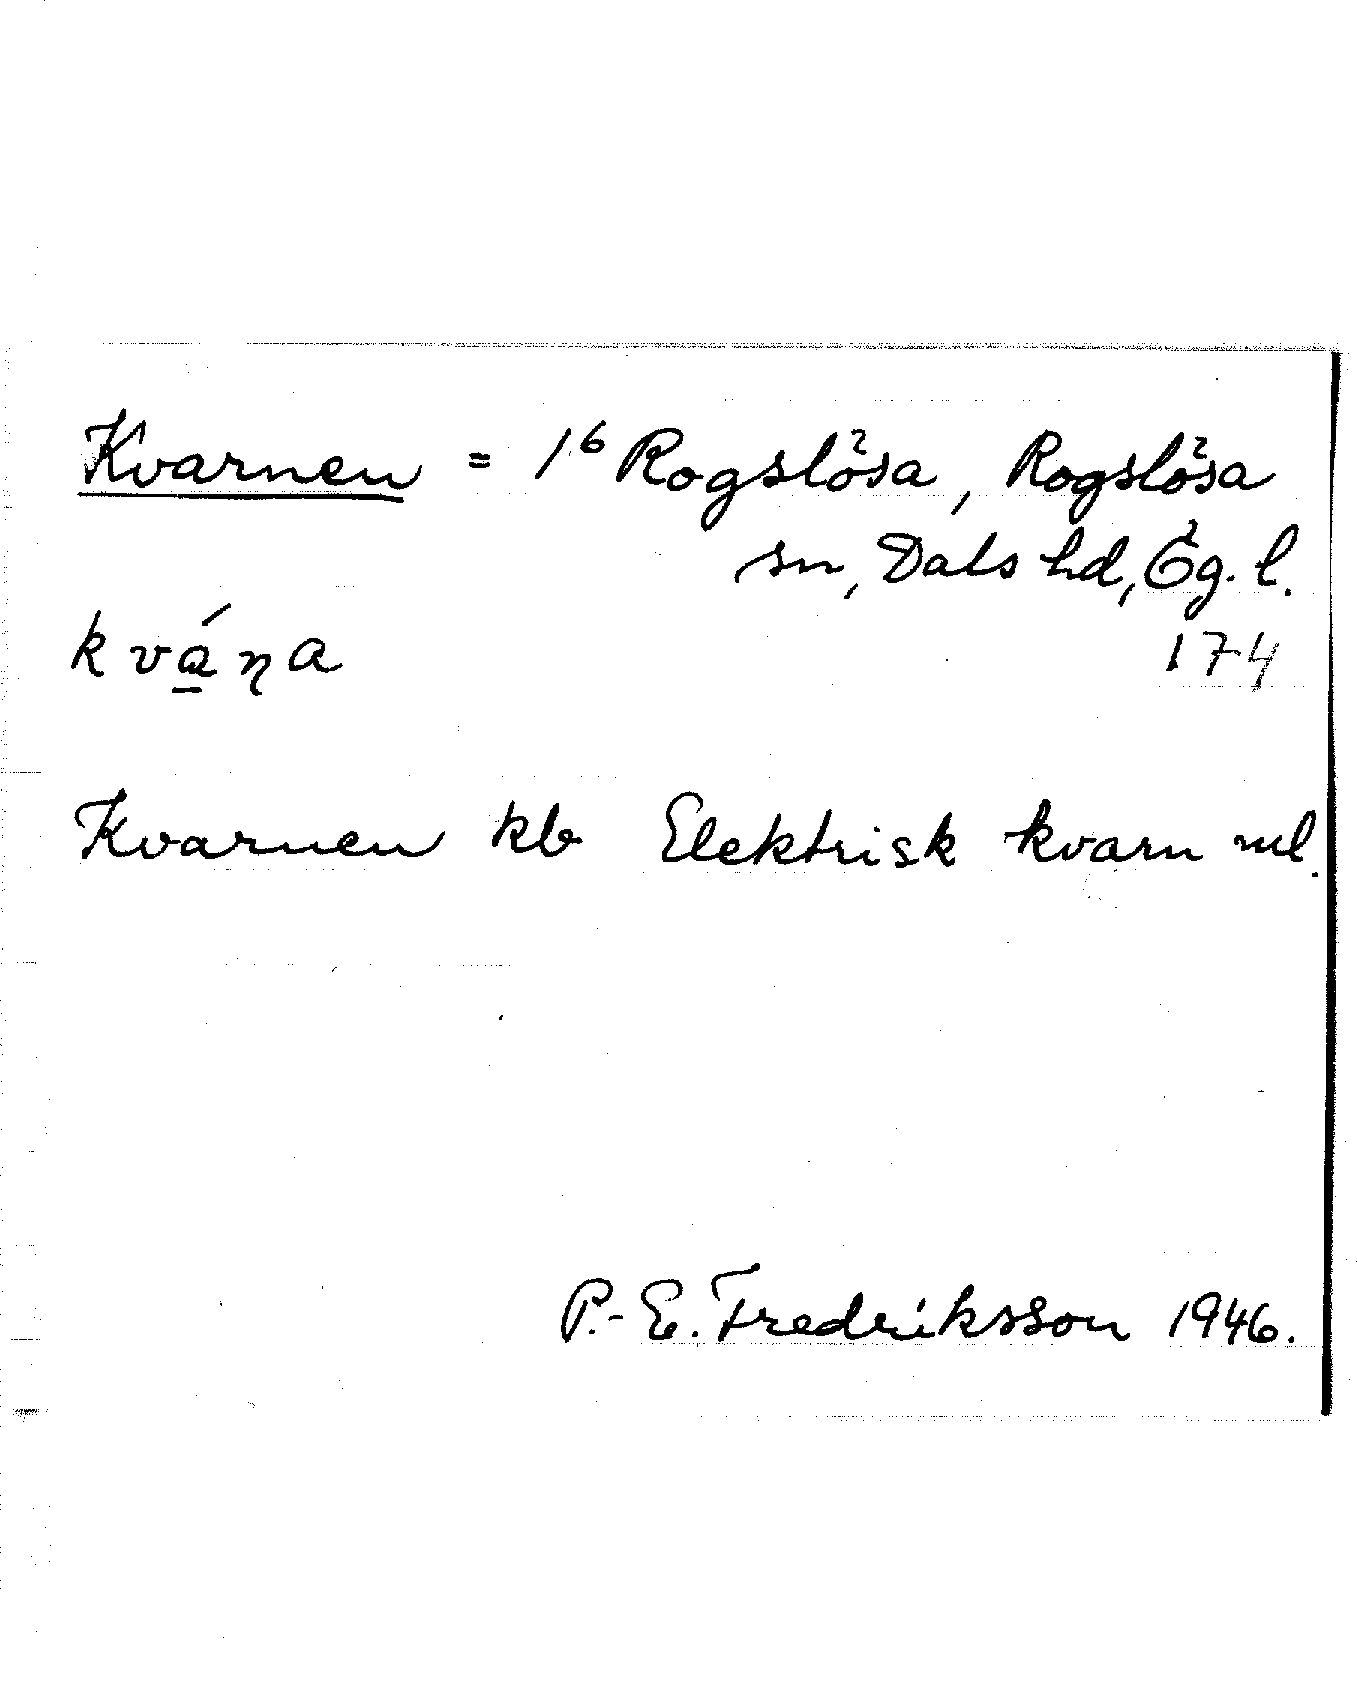 Kvarnen = 1⁶ Rogslösa, Rogslösa
sn, Dals hd, Ög. l.
kvá̱ꞃa 174
Kvarnen kb Elektrisk kvarn ml.
P.-E. Fredriksson 1946.